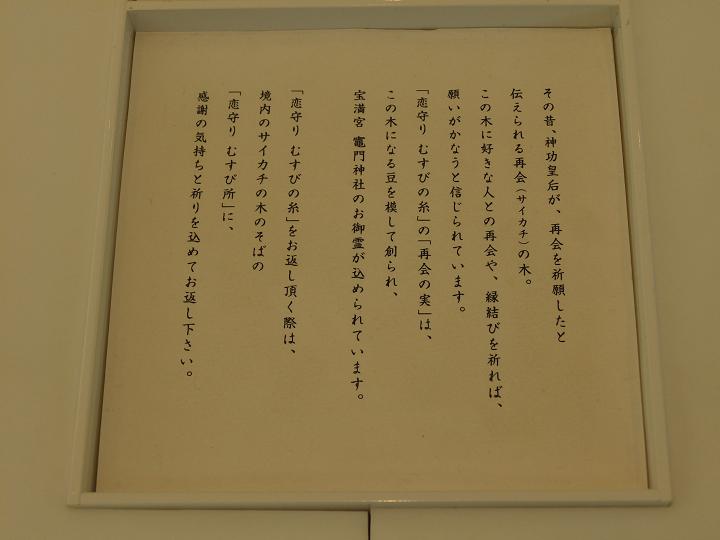 その昔、神功皇后が、再会を祈願したと
伝えられる再会(サイカチ)の木。
この木に好きな人との再会や、縁結びを祈れば、
願いがかなうと信じられています。
「恋守り むすびの糸」の「再会の実」は、
この木になる豆を模して創られ、
宝満宮 竈門神社のお御霊が込められています。
「恋守り むすびの糸」をお返し頂く際は、
境内のサイカチの木のそばの
「恋守り むすび所」に、
感謝の気持ちと祈りを込めてお返し下さい。